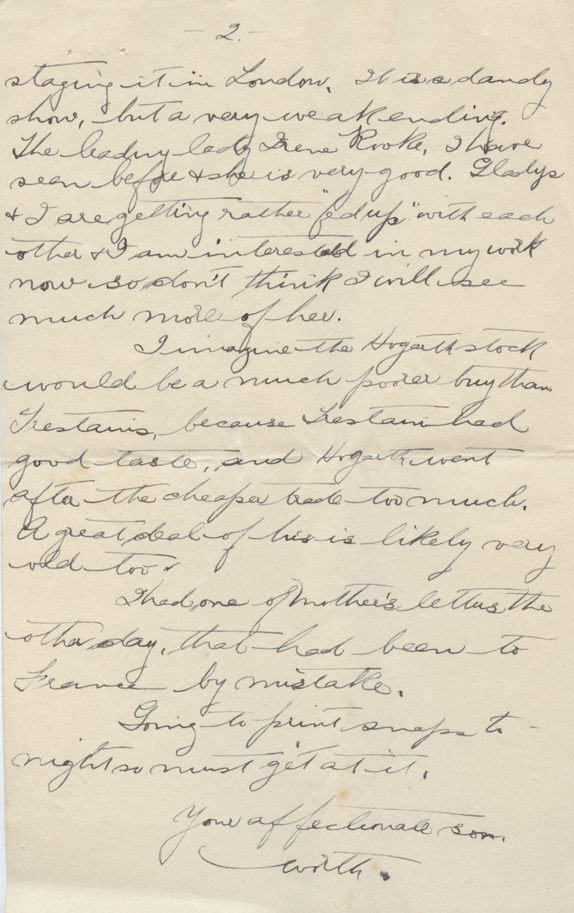 - 2. -
staging it in London. It is a dandy
show, but a very weak ending.
The leading lady Irene Rooke, I have
seen before & she is very good. Gladys
& I are getting rather "fed up" with each
other & I am interested in my work
now so don't think I will see
much more of her.
I imagine the Hogarth stock
would be a much poorer buy than
Trestains, because Trestain had
good taste, and Hogarth went
after the cheaper trade too much.
A great deal of his is likely very
old too.
I had one of Mother's letters the
other day, that had been to
France by mistake.
Going to print snaps to-
night so must get at it.
Your affectionate son.
Worth.